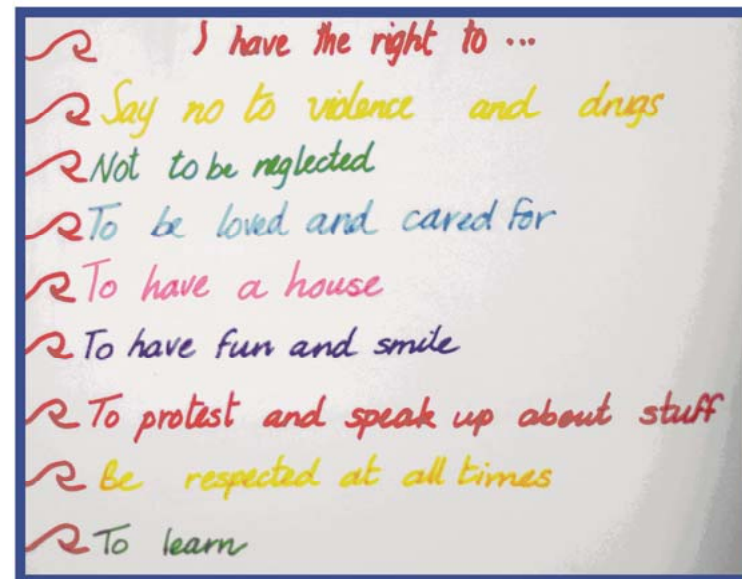 I have the right to ...
Say no to violence and drugs
Not to be neglected
To be loved and cared for
To have a house
To have fun and smile
To protest and speak up about stuff
Be respected at all times
To learn